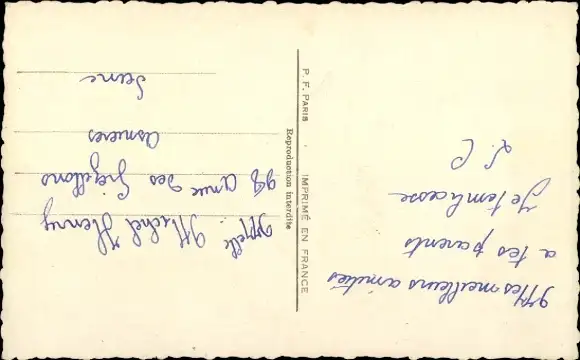 Mes meilleurs amitiés
a tes parents
Je t'embrasse
L. C
P. F. PARIS · IMPRIMÉ EN FRANCE
Reproduction interdite
Melle Michel Henry
98 Anue des Grésillons
Asnieres
Seine